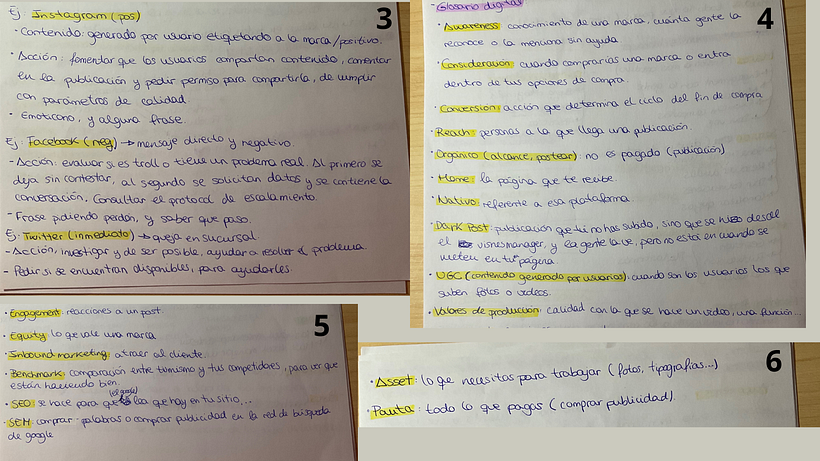 3
Ej: Instagram (pos)
• Contenido: generado por usuario etiquetando a la marca/positivo.
• Acción: fomentar que los usuarios compartan contenido, comentar
en la publicación y pedir permiso para compartirla, de cumplir
con parámetros de calidad
• Emoticono, y alguna frase.
Ej: Facebook (neg) → mensaje directo y negativo.
- Acción: evaluar si es troll o tiene un problema real. Al primero se
deja sin contestar, al segundo se solicitan datos y se contiene la
conversación. Consultar el protocol de escalamiento.
- Frase pidiendo perdón, y saber que paso.
Ej: Twitter (inmediato) → queja en sucursal.
- Acción, investigar y de ser posible, ayudar a resolver el problema.
- Pedir si se encuentran disponibles, para ayudarles.
4
- Glosario digital
• Awareness: conocimiento de una marca, cuánta gente la
reconoce o la menciona sin ayuda.
• Consideración: cuando comprarías una marca o entra
dentro de tus opciones de compra
• Conversión: acción que determina el ciclo del fin de compra
• Reach: personas a la que llega una publicación.
• Orgánico (alcance, postear): no es pagado (publicación)
• Home: la página que te recibe.
• Nativo: referente a esa plataforma.
• Dark Post: publicación que tú no has subido, sino que se hizo desde
el businessmanager, y la gente la ve, pero no está en cuando se
meten en tu página.
• UGC (contenido generado por usuarios): cuando son los usuarios los que
suben fotos o videos.
• Valores de producción: calidad con la que se hace un video, una función...
5
• Engagement: reacciones a un post.
• Equity: lo que vale una marca
• Inbound marketing: atraer al cliente.
• Benchmark: comparación entre tu mismo y tus competidores, para ver que
están haciendo bien.
• SEO: se hace para que lea que hay en tu sitio,...
(el google)
• SEM: comprar palabras o comprar publicidad en la red de búsqueda
de google
6
• Asset: lo que necesitas para trabajar (fotos, tipografías...)
• Pauta: todo lo que pagas (comprar publicidad).